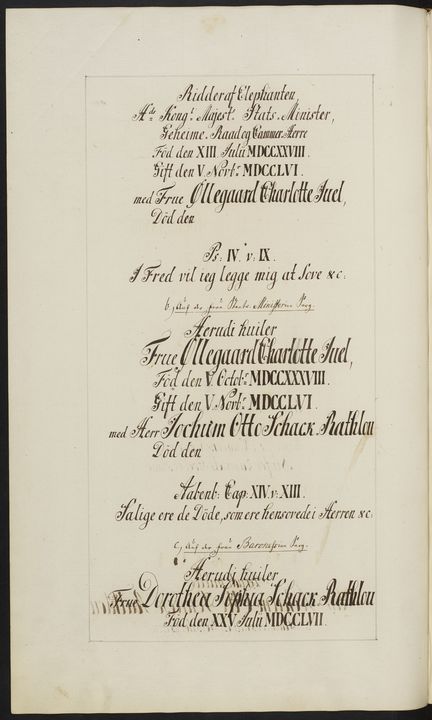 Ridder af Elephanten,
Hds Kongl. Mayest. Stats-Minister,
Geheime-Raad og Cammer-Herre
Föd den XIII Julii MDCCXXVIII.
Gift den V. Novbr. MDCCLVI.
med Frue Øllegaard Charlotte Juel,
Död den
Ps: IV. v: IX.
I Fred vil ieg legge mig at Sove &c:
b.) Auf der Frau Staats-Ministerin Sarg.
Herudi huiler
Frue Øllegaard Charlotte Juel,
Föd den V. Octobr. MDCCXXXVIII.
Gift den V. Novbr. MDCCLVI.
med Herr Jochum Otto Schack-Rathlou
Död den
Aabenb: Cap: XIV. v: XIII.
Salige ere de Döde, som ere hensovede i Herren &c.
c.) Auf der Frau Baronessin Sarg.
Herudi huiler
Frue Dorothea Sophia Schack-Rathlou
Föd den XXV Julii MDCCLVII.